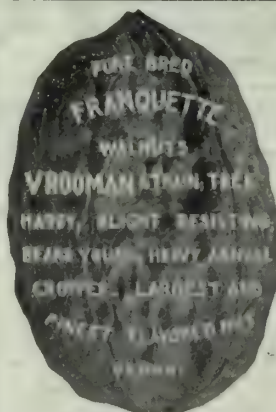 PURE BRED
FRANQUETTE
WALNUTS
VROOMAN STRAIN, TREE
HARDY, BLIGHT RESISTING
BEARS YOUNG, HEAVY ANNUAL
CROPPER. LARGEST AND
FINEST FLAVORED